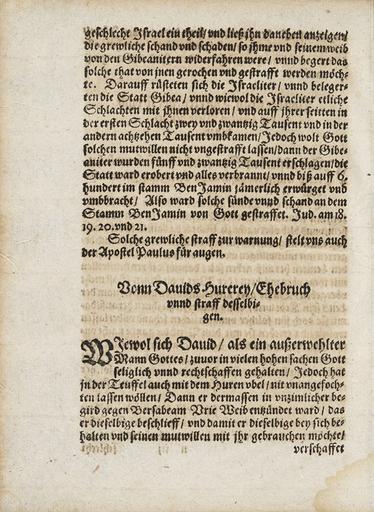 geschlecht Jsrael ein theil/ vnd ließ jhn darneben anzeigen/
die grewliche schand vnd schaden/ so jhme vnd seinem weib
von den Gibeanitern widerfahren were/ vnnd begert das
solche that von jnen gerochen vnd gestrafft werden möch-
te. Darauff rüsteten sich die Jsraeliter/ vnnd beleger-
ten die Statt Gibea/ vnnd wiewol die Jsraeliter etliche
Schlachten mit jhnen verloren/ vnd auff jhrer seitten in
der ersten Schlacht zwey vnd zwantzig Tausent vnd in der
andern achtzehen Tausent vmbkamen/ Jedoch wolt Gott
solchen mutwillen nicht vngestrafft lassen/ dann der Gibe-
aniter wurden fünff vnd zwantzig Tausent erschlagen/ die
Statt ward erobert vnd alles verbrannt/ vnnd biß auff 6.
hundert im stamm BenJamin jämerlich erwürget vnd
vmbbracht/ Also ward solche sünde vnnd schand an dem
Stamm BenJamin von Gott gestraffet. Jud. am 18.
19. 20. vnd 21.
Solche grewliche straff zur warnung/ stelt vns auch
der Apostel Paulus für augen.
Vonn Dauids Hurerey/ Ehebruch
vnnd straff desselbi-
gen.
WJewol sich Dauid/ als ein außerwehlter
Mann Gottes/ zuuor in vielen hohen sachen Gott
seliglich vnnd rechtschaffen gehalten/ Jedoch hat
jn der Teuffel auch mit dem Huren vbel/ nit vnangefoch-
ten lassen wöllen/ Dann er dermassen in vnzimlicher be-
gird gegen Bersabeam Vrie Weib entzündet ward/ das
er dieselbige beschlieff/ vnd damit er dieselbige bey sich be-
halten vnd seinen mutwillen mit jhr gebrauchen möchte/
verschaffet